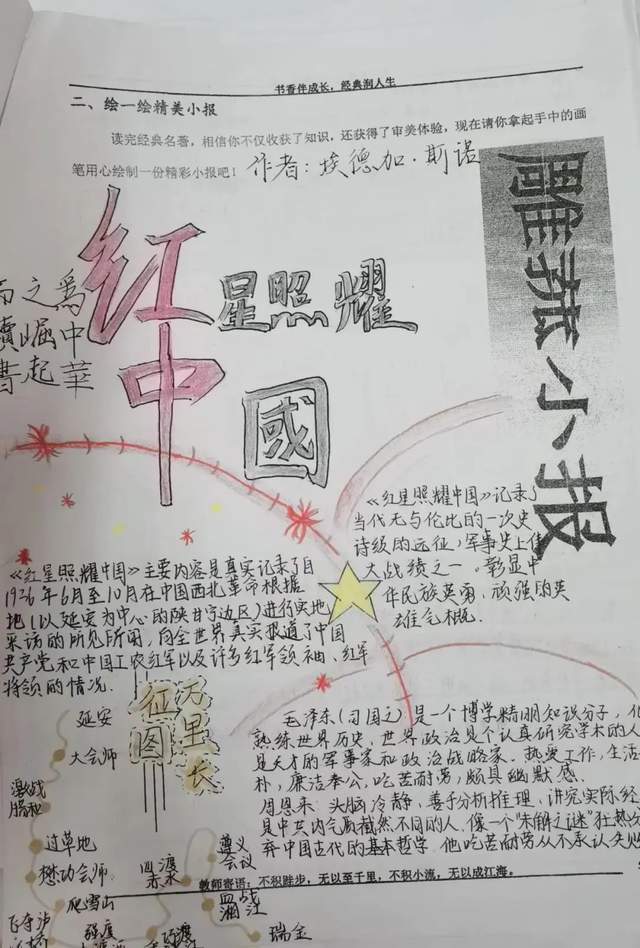 书香伴成长，经典润人生
二、绘一绘精美小报
读完经典名著，相信你不仅收获了知识，还获得了审美体验，现在请你拿起手中的画
笔用心绘制一份精彩小报吧！
作者：埃德加·斯诺
雕菰小报
红星照耀
中國
為中華
之崛起
而讀書
《红星照耀中国》记录了
当代无与伦比的一次史
诗级的远征，军事史上伟
大战绩之一。彰显中
华民族英勇，顽强的英
雄气概.
《红星照耀中国》主要内容是真实记录了自
1936年6月至10月在中国西北革命根据
地（以延安为中心的陕甘宁边区）进行实地
采访的所见所闻，向全世界真实报道了中国
共产党和中国工农红军以及许多红军领袖、红军
将领的情况.
万里长
征图
延安
大会师
激战
腊子
过草地
懋功会师
爬雪山
飞夺泸
强度
四渡
赤水
巧渡
遵义
会议
血战
湘江
瑞金
毛泽东（
）是一个博学精明知识分子，
熟练世界历史，世界政治是个认真研究学术的人
是天才的军事家和政治战略家。热爱工作，生活
朴，廉洁奉公，吃苦耐劳，颇具幽默感.
周恩来：头脑冷静，善于分析推理、讲究实际经
是中共内气质截然不同的人.像一个“朱
之谜”狂热分
弃中国古代的基本哲学.他吃苦耐劳从不承认失败
教师寄语：不积跬步，无以至千里，不积小流，无以成江海。